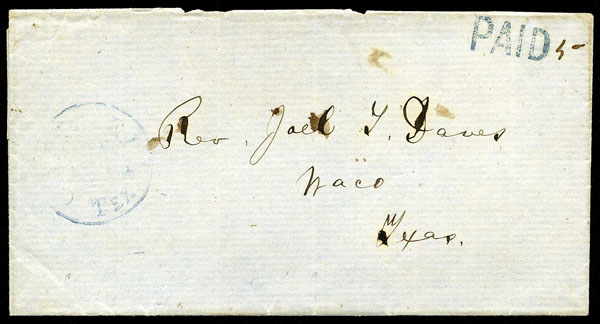 PAID 5
Rev. Joel T. Daves
Waco
Texas.
TEX